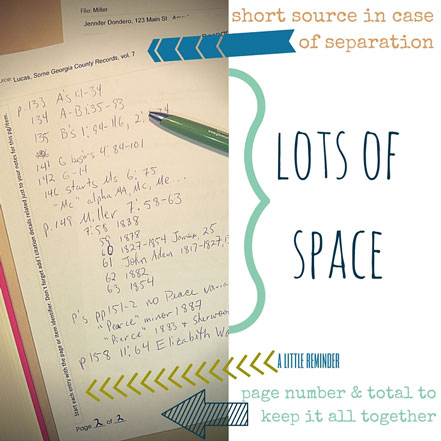 File: Miller
Jennifer Dondero, 123 Main St
short source in case
of separation
Source: Lucas, Some Georgia County Records, vol. 7
p. 133 A's 1:1-34
134 A-B 1:35-93
135 B's 1: 94-116, 2: 74
141 G begins 4: 84-101
142 G-14
146 starts Ms 6: 75
"Mc" alpha MA, Mc, Me...
p. 149 Miller 7: 58-63
7:58 1838
59 1878
60 1827-1854 James, 25
61 John Adam 1817-1827,
62 1882
63 1854
p's pp151-2 no Peace varia
"Pearce" minor 1887
"Pierce" 1883 & Sherwoo
p158 11:64 Elizabeth Wa
Start each entry with the page or item identifier. Don't forget: add citation details related just to your notes for this pg/item.
LOTS OF
SPACE
A LITTLE REMINDER
Page 2 of 2
page number & total to
keep it all together